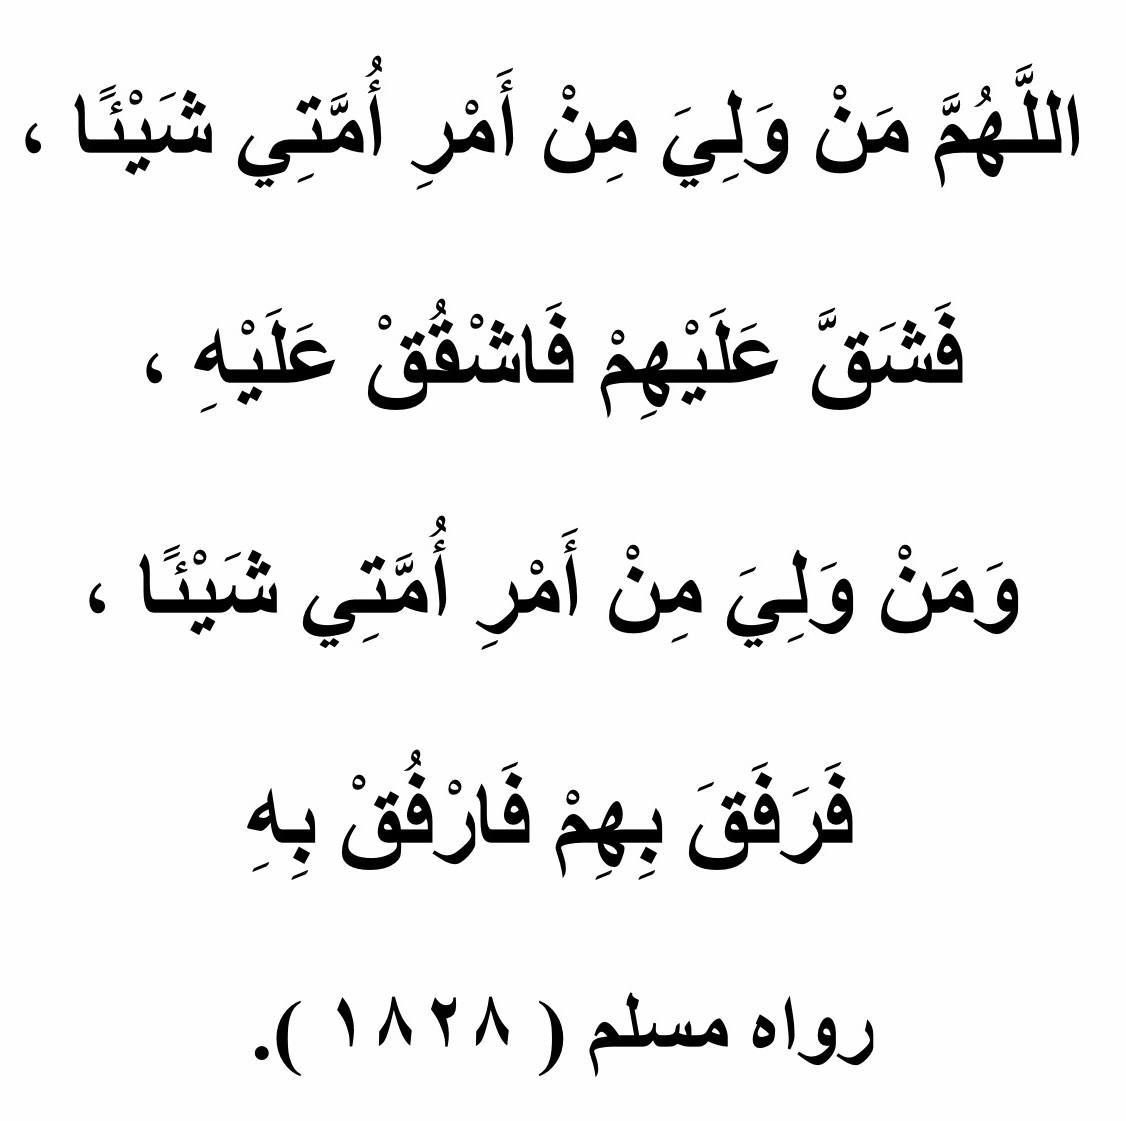 اللَّهُمَّ مَنْ وَلِيَ مِنْ أَمْرِ أُمَّتِي شَيْئًا ،
فَشَقَّ عَلَيْهِمْ فَاشْقُقْ عَلَيْهِ ،
وَمَنْ وَلِيَ مِنْ أَمْرِ أُمَّتِي شَيْئًا ،
فَرَفَقَ بِهِمْ فَارْفُقْ بِهِ
رواه مسلم ( ١٨٢٨ ).